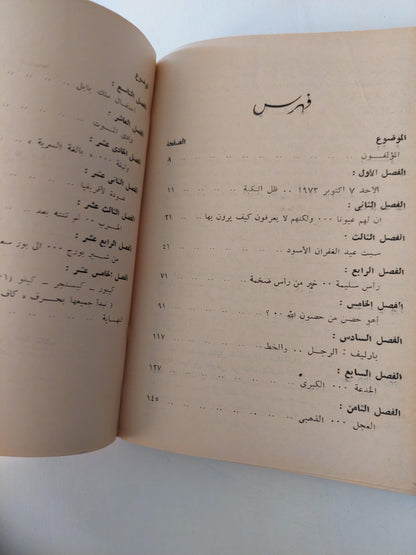 فهرس
الموضوع الصفحة
المؤلفون .. .. .. .. .. .. ٨
الفصل الأول :
الاحد ٧ أكتوبر ١٩٧٣ .. ظل النكبة .. .. ١١
الفصل الثانى :
ان لهم عيونا ... ولكنهم لا يعرفون كيف يرون بها .. ٢١
الفصل الثالث :
سبت عيد الغفران الأسود .. .. .. .. ٤١
الفصل الرابع :
رأس سليمة .. خير من رأس ضخمة .. .. ٧١
الفصل الخامس :
أهو حصن من حصون الله .. ؟ .. .. .. ٩١
الفصل السادس :
بارليف : الرجل .. والخط .. .. .. ١١٧
الفصل السابع :
الخدعة ... الكبرى .. .. .. .. ١٢٧
الفصل الثامن :
العجل ... الذهبى .. .. .. .. ١٤٥
الموضوع
الفصل التاسع :
اعتقال ملك بابل .. .. ..
الفصل العاشر :
وادى الموت .. .. ..
الفصل الحادى عشر :
وثيقة ... « بالغة السرية » ..
الفصل الثانى عشر :
عودة لأفريقيا .. .. ..
الفصل الثالث عشر :
الحرب .. لم تنته بعد .. ..
الفصل الرابع عشر :
من شتير بورج .. الى بور سع
الفصل الخامس عشر :
كيبور _ كيسنجر _ كيلو ١٠١
( تبدأ جميعها بحرف « كاف
لنهاية .. .. .. ..